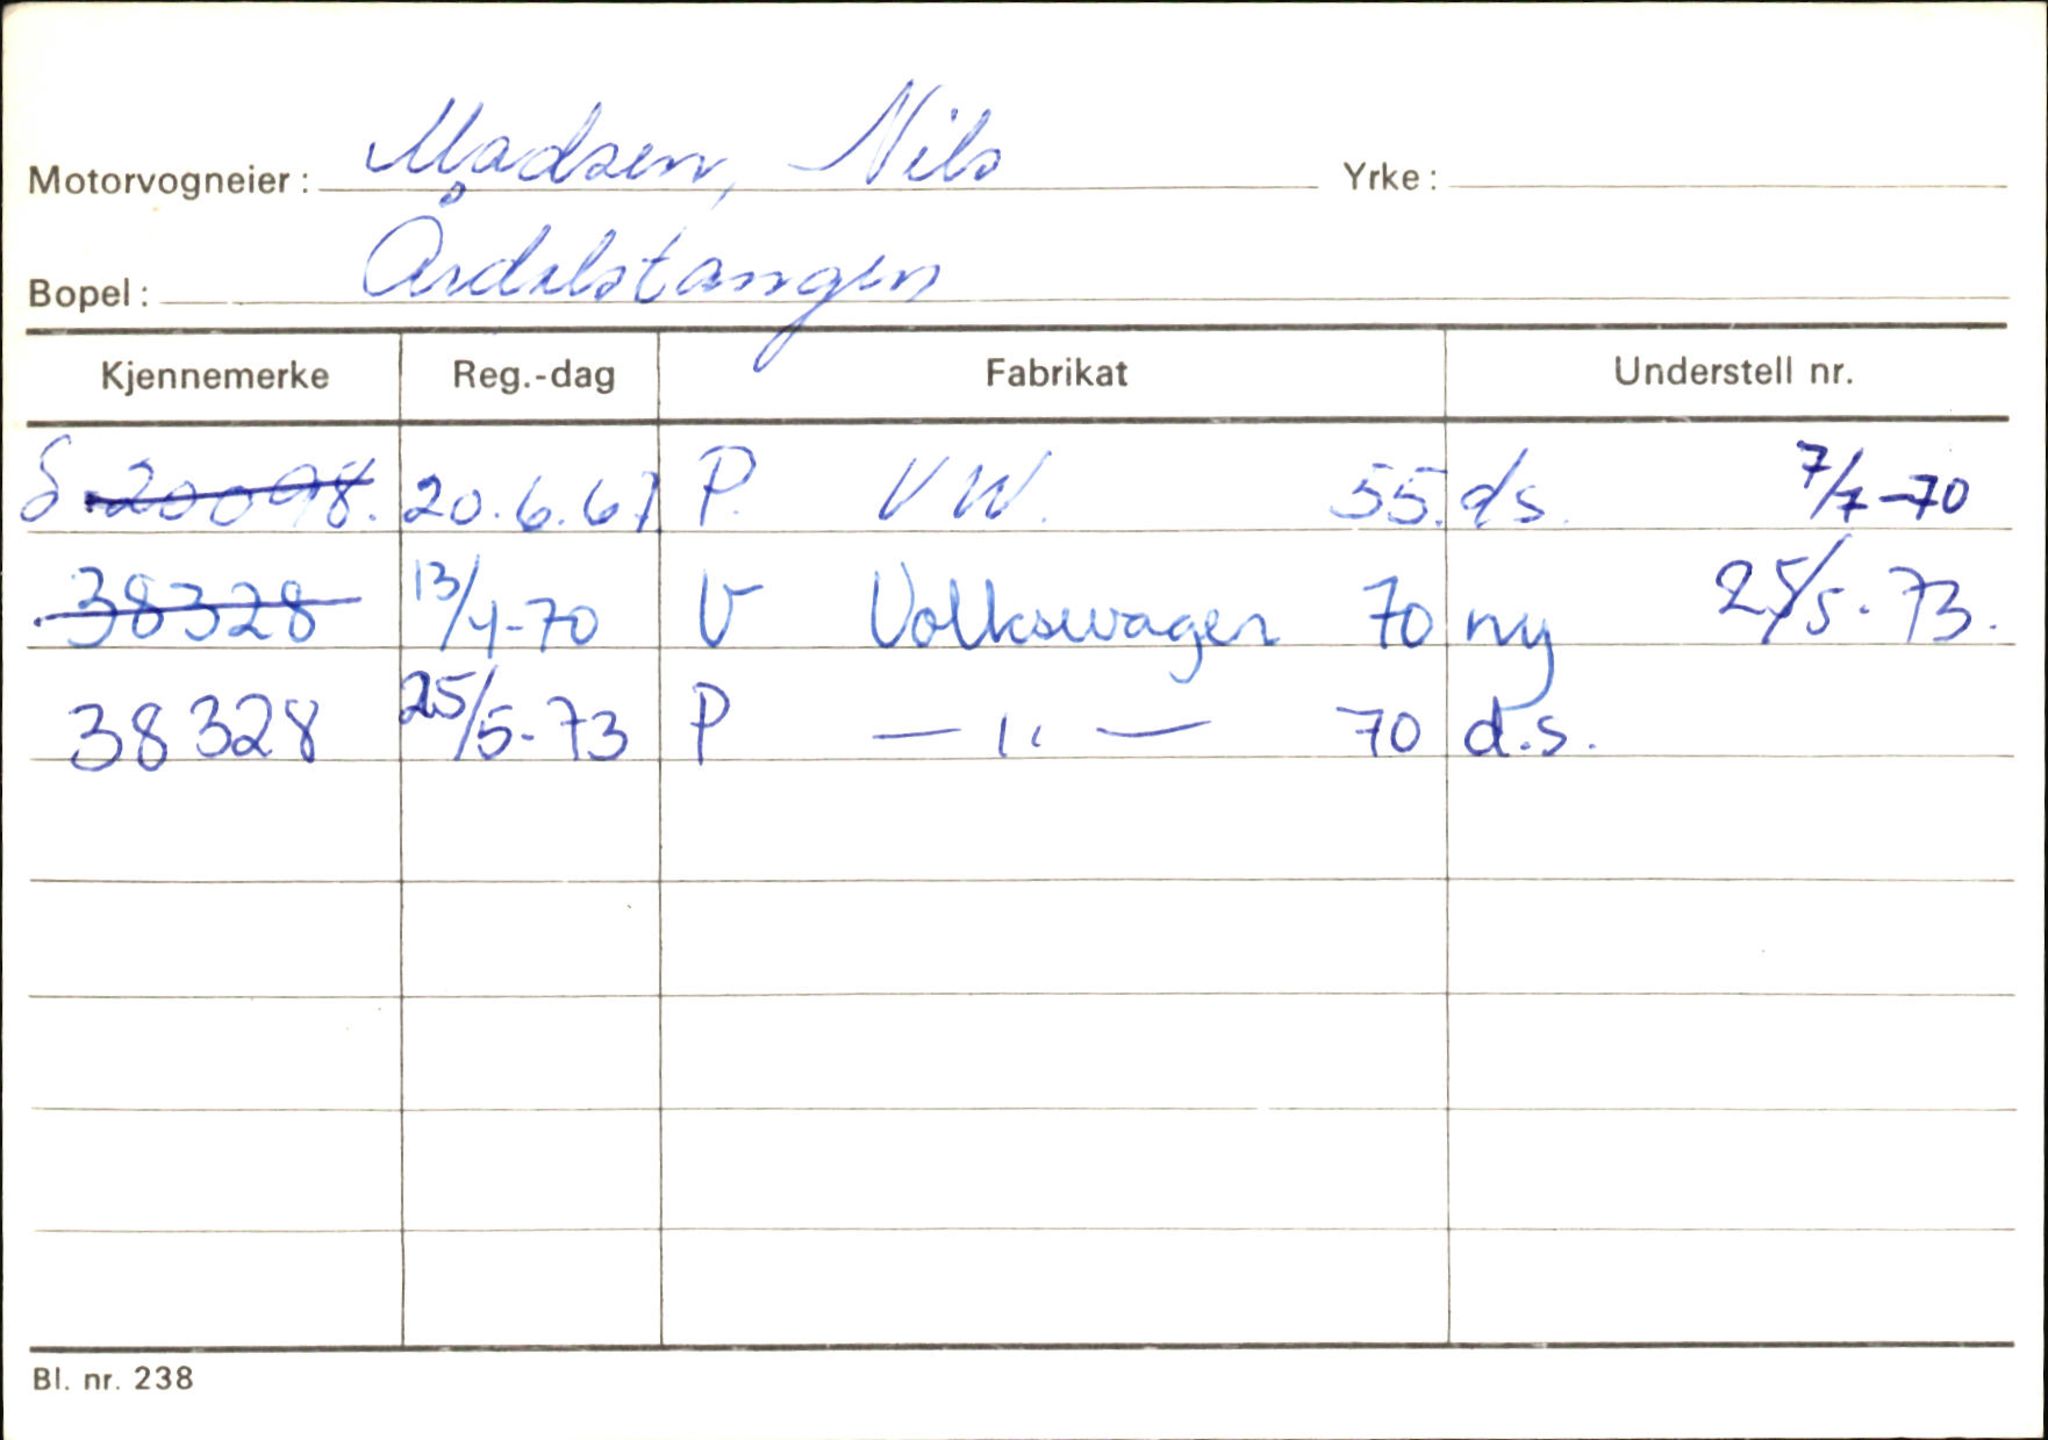 Motorvogneier: Madsen, Nils Yrke:
Bopel: Årdalstangen
Kjennemerke Reg.-dag Fabrikat Understell nr.
S 20098. 20.6.67 P. VW. 55. ds. 7/7-70
38328 13/4-70 V Volkswagen 70 ny 25/5-73.
38328 25/5-73 P — " — 70 d.s.
Bl. nr. 238